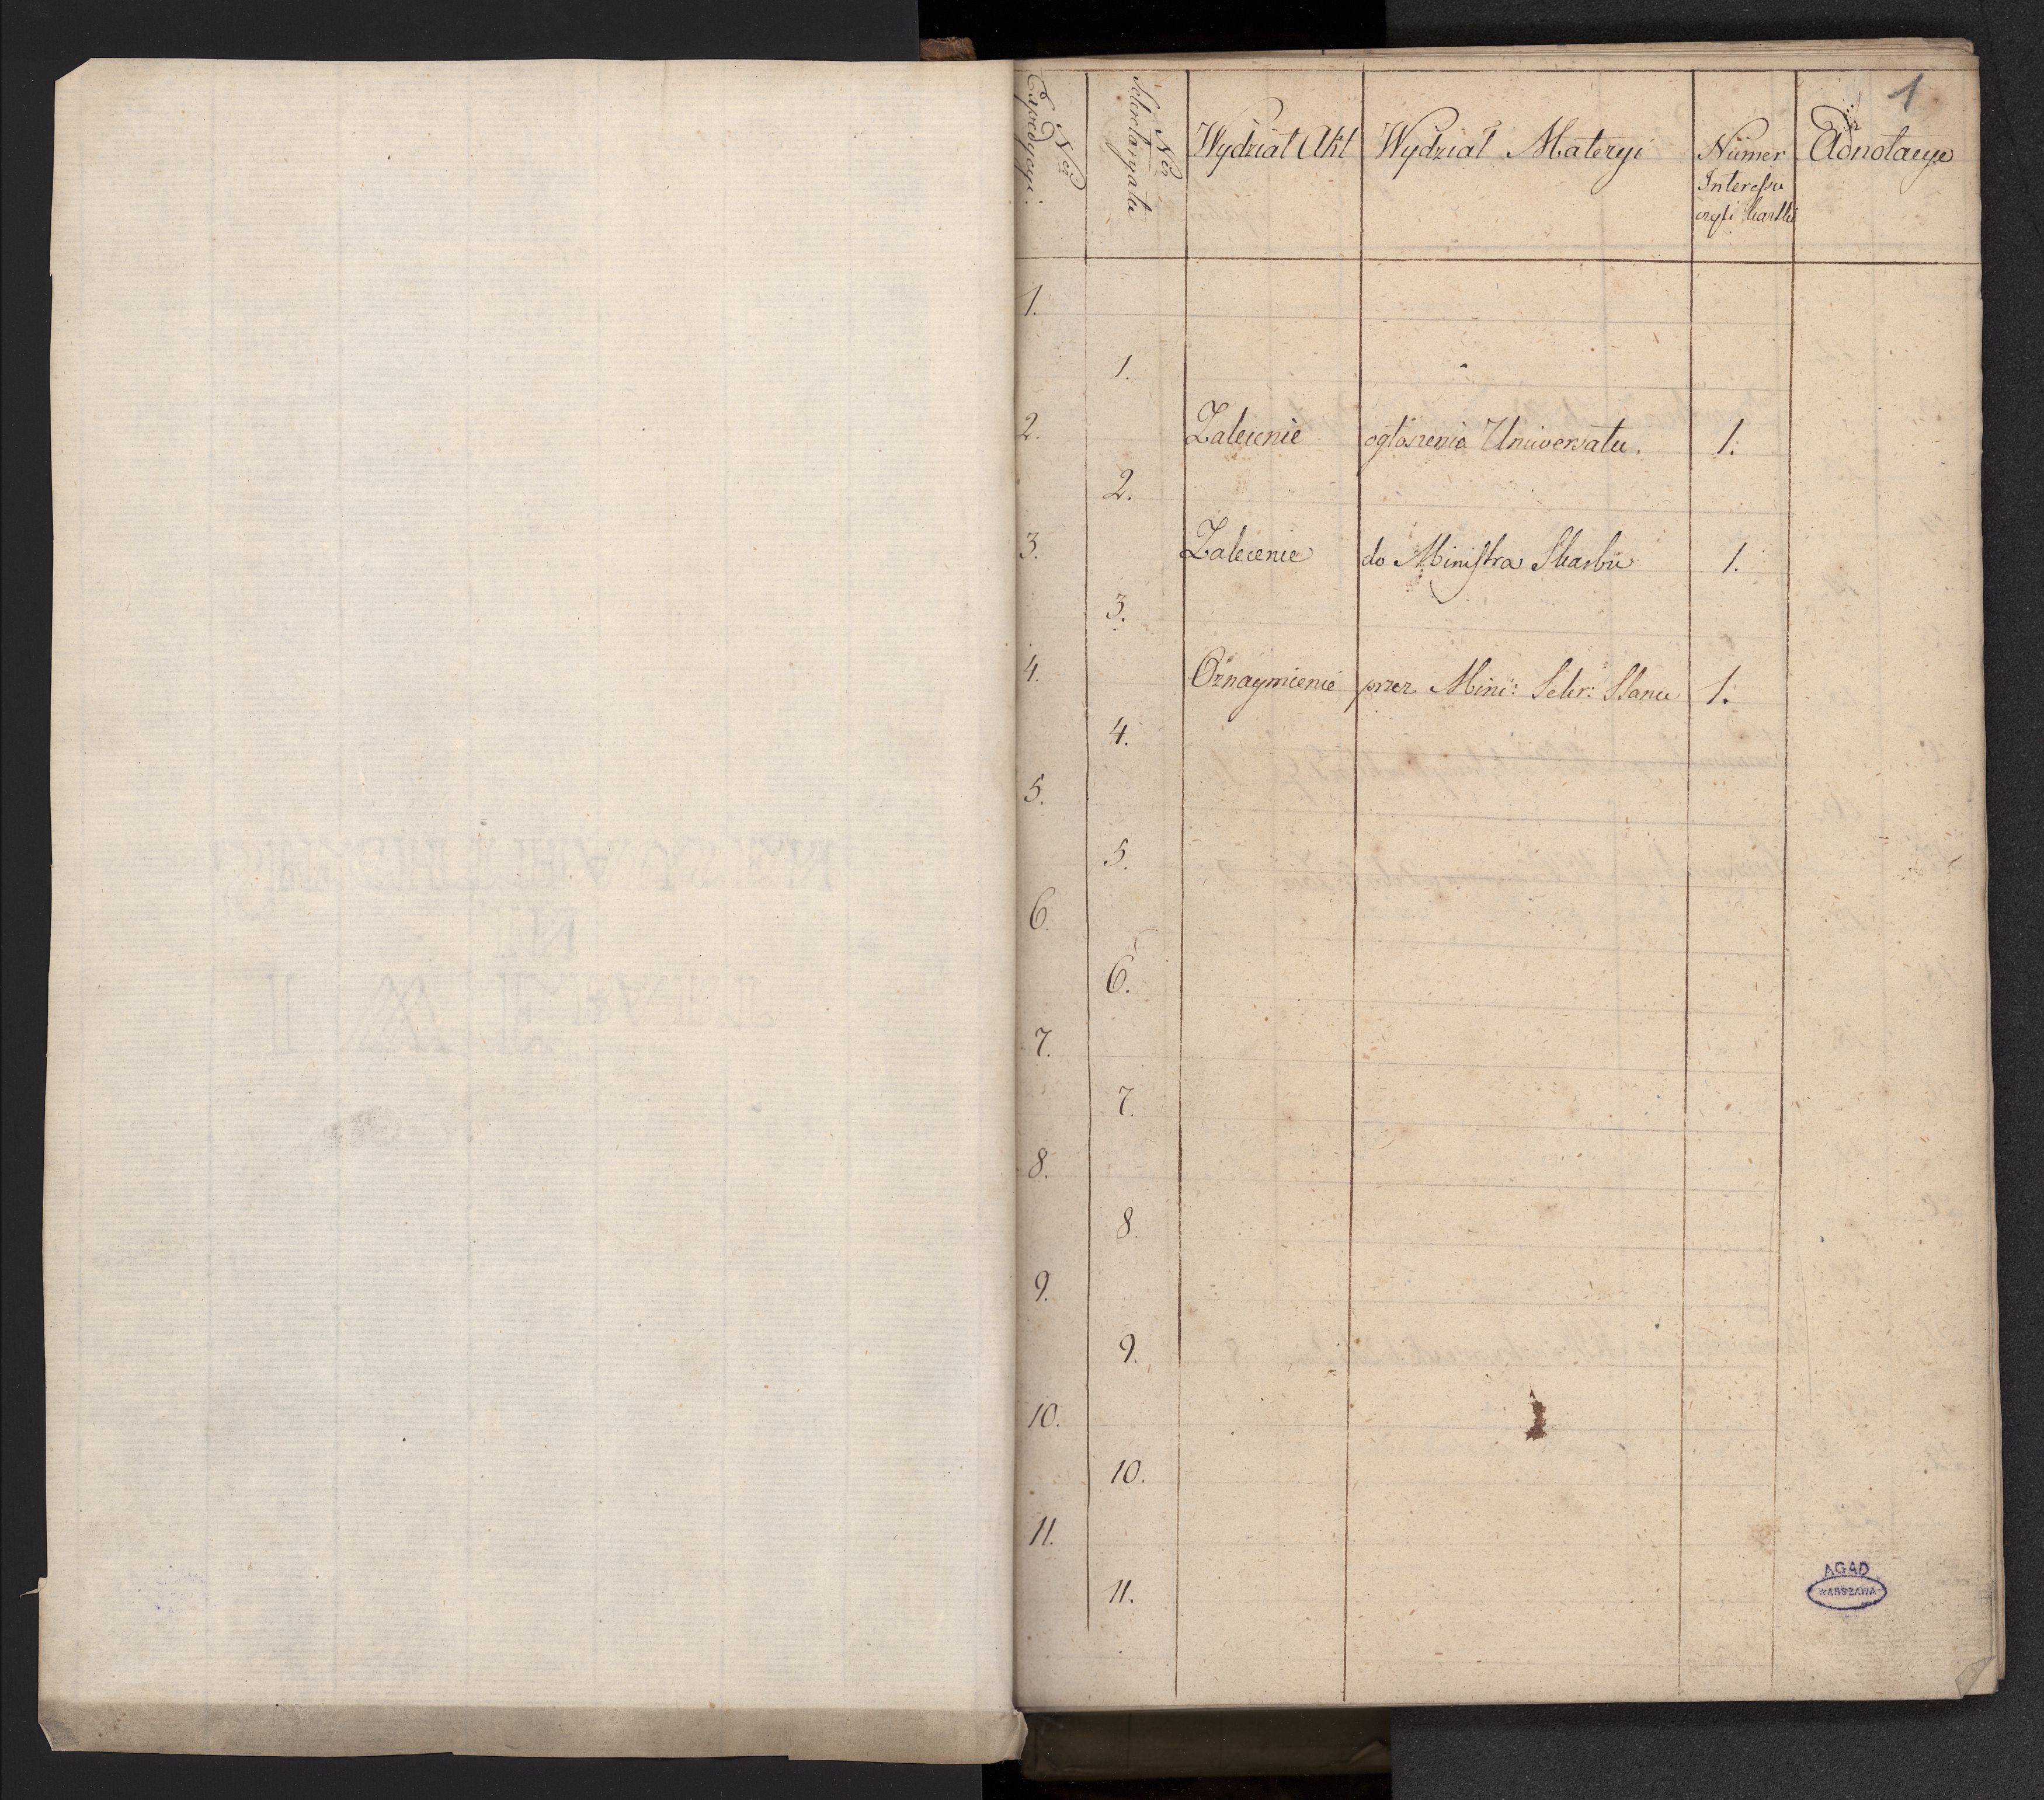 1
Nro Expedycyi:
Nro Sekretaryatu
Wydział Akt
Wydział Materyi
Numer
Interessu
czyli kartki
Adnotacye
1.
1.
2. Zalecenie ogłoszenia Uniwersału. 1.
2.
3. Zalecenie do Ministra Skarbu 1.
3.
4. Oznaymienie przez Mini: Sekr: Stanu 1.
4.
5.
5.
6.
6.
7.
7.
8.
8.
9.
9.
10.
10.
11.
11.
AGAD
WARSZAWA